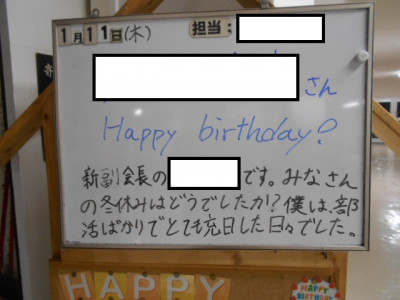 1月11日(木) 担当:
さん
Happy birthday?
新副会長の です。みなさん
の冬休みはどうでしたか?僕は、部
活ばかりでとても充日した日々でした。
HAPPY
HAPPY
BIRTHDAY